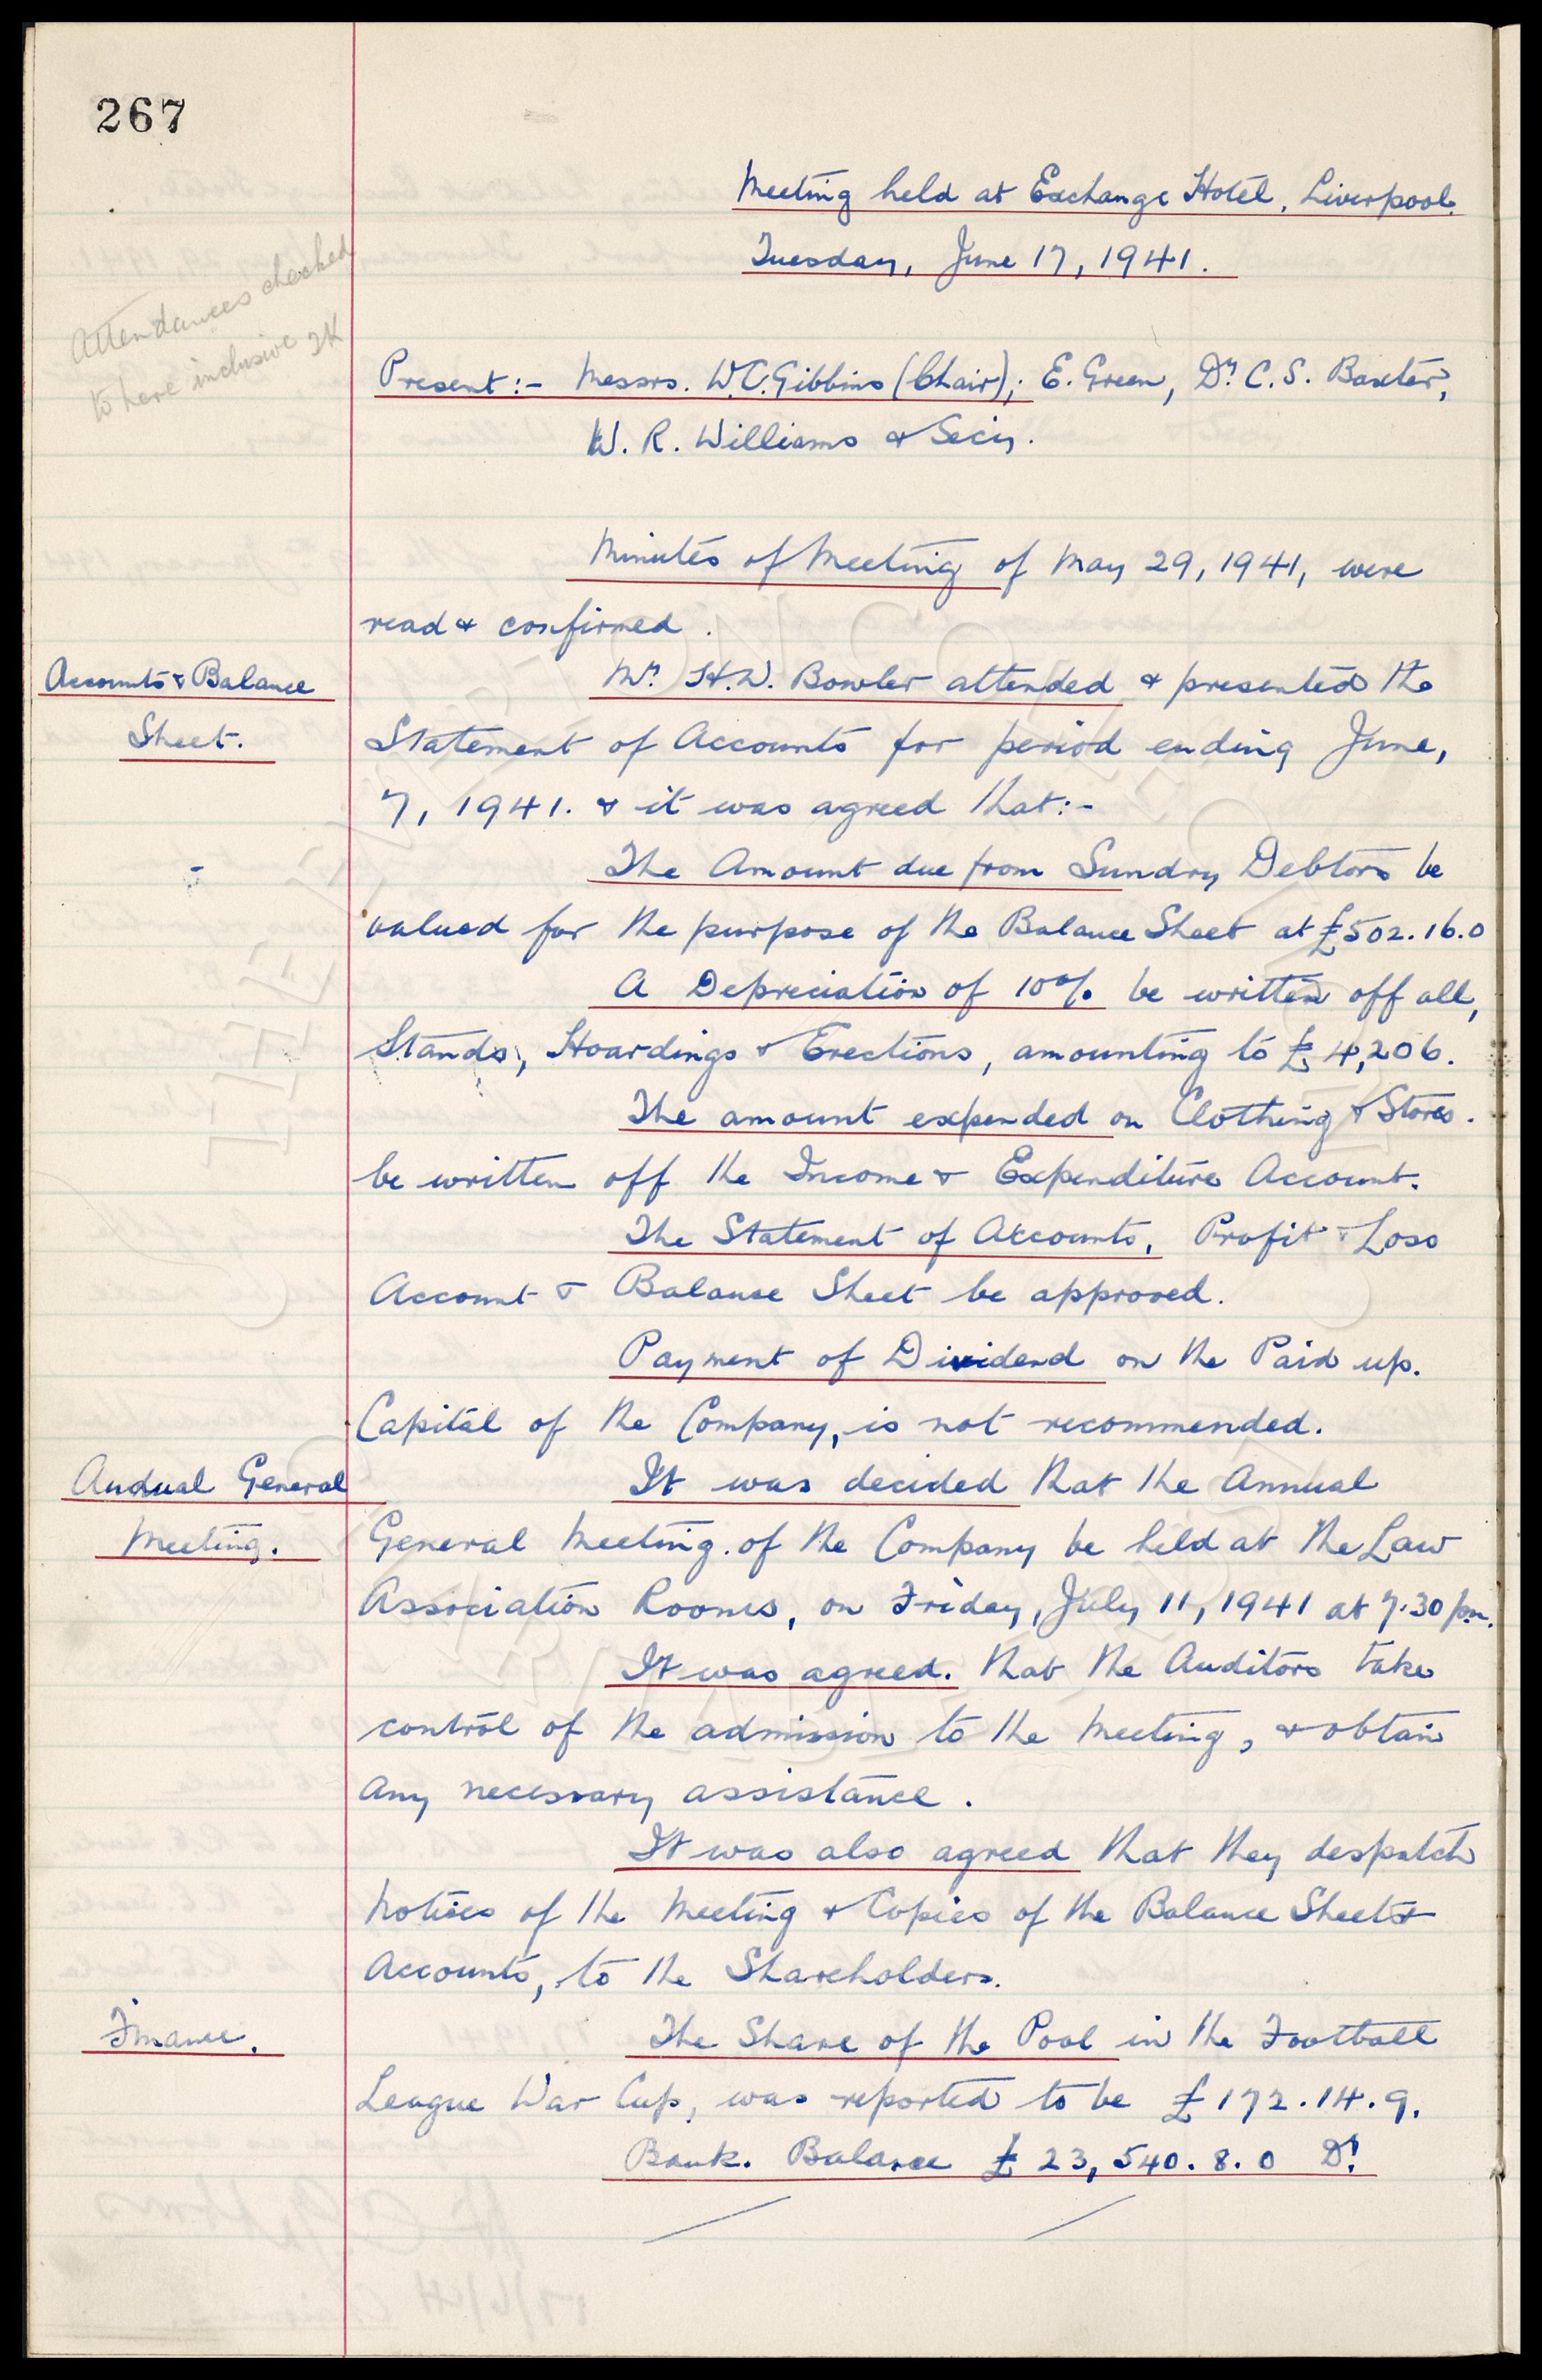 267
Meeting held at Exchange Hotel, Liverpool.
Tuesday, June 17, 1941.
Attendances checked
to here inclusive
Present:- Messrs. W.C. Gibbins (Chair); E. Green, Dr. C. S. Baxter,
W. R. Williams & Secy.
Minutes of Meeting of May 29, 1941, were
read & confirmed.
Accounts & Balance
Sheet.
Mr. H.W. Bowler attended & presented the
Statement of Accounts for period ending June,
7, 1941. & it was agreed that:-
The Amount due from Sundry Debtors be
valued for the purpose of the Balance Sheet at £502.16.0
A Depreciation of 10% be written off all,
Stands, Hoardings & Erections, amounting to £4,206.
The amount expended on Clothing & Stores.
be written off the Income & Expenditure Account.
The Statement of Accounts, Profit & Loss
Account & Balance Sheet be approved.
Payment of Dividend on the Paid up.
Capital of the Company, is not recommended.
Annual General
Meeting.
It was decided that the Annual
General Meeting. of the Company be held at the Law
Association Rooms, on Friday, July 11, 1941 at 7.30 pm.
It was agreed. that the Auditors take
control of the admission to the Meeting, & obtain
any necessary assistance.
It was also agreed that they despatch
Notices of the Meeting & Copies of the Balance Sheet &
Accounts, to the Shareholders.
Finance.
The Share of the Pool in the Football
League War Cup, was reported to be £172.14.9.
Bank. Balance £23,540.8.0 Dr.